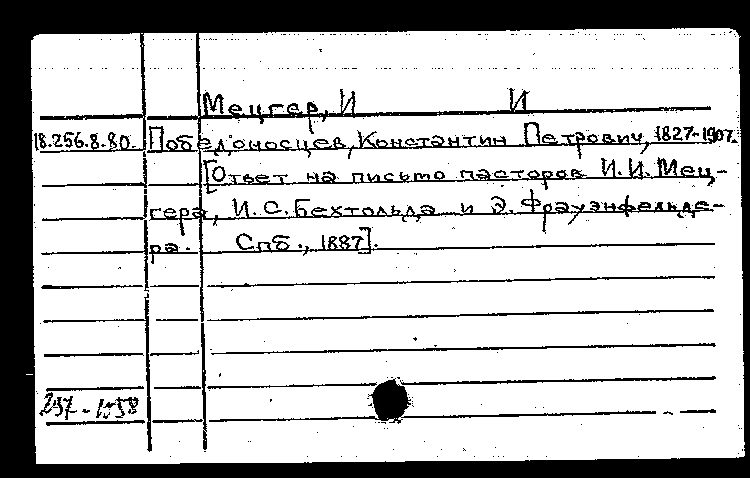 Мецгер, И И
18.256.8.80. Победоносцев, Константин Петрович, 1827-1907.
[Ответ на письмо пасторов И.И. Мец-
гера, И.С. Бехтольда и Э. Фрауэнфельде-
ра. Спб., 1887].